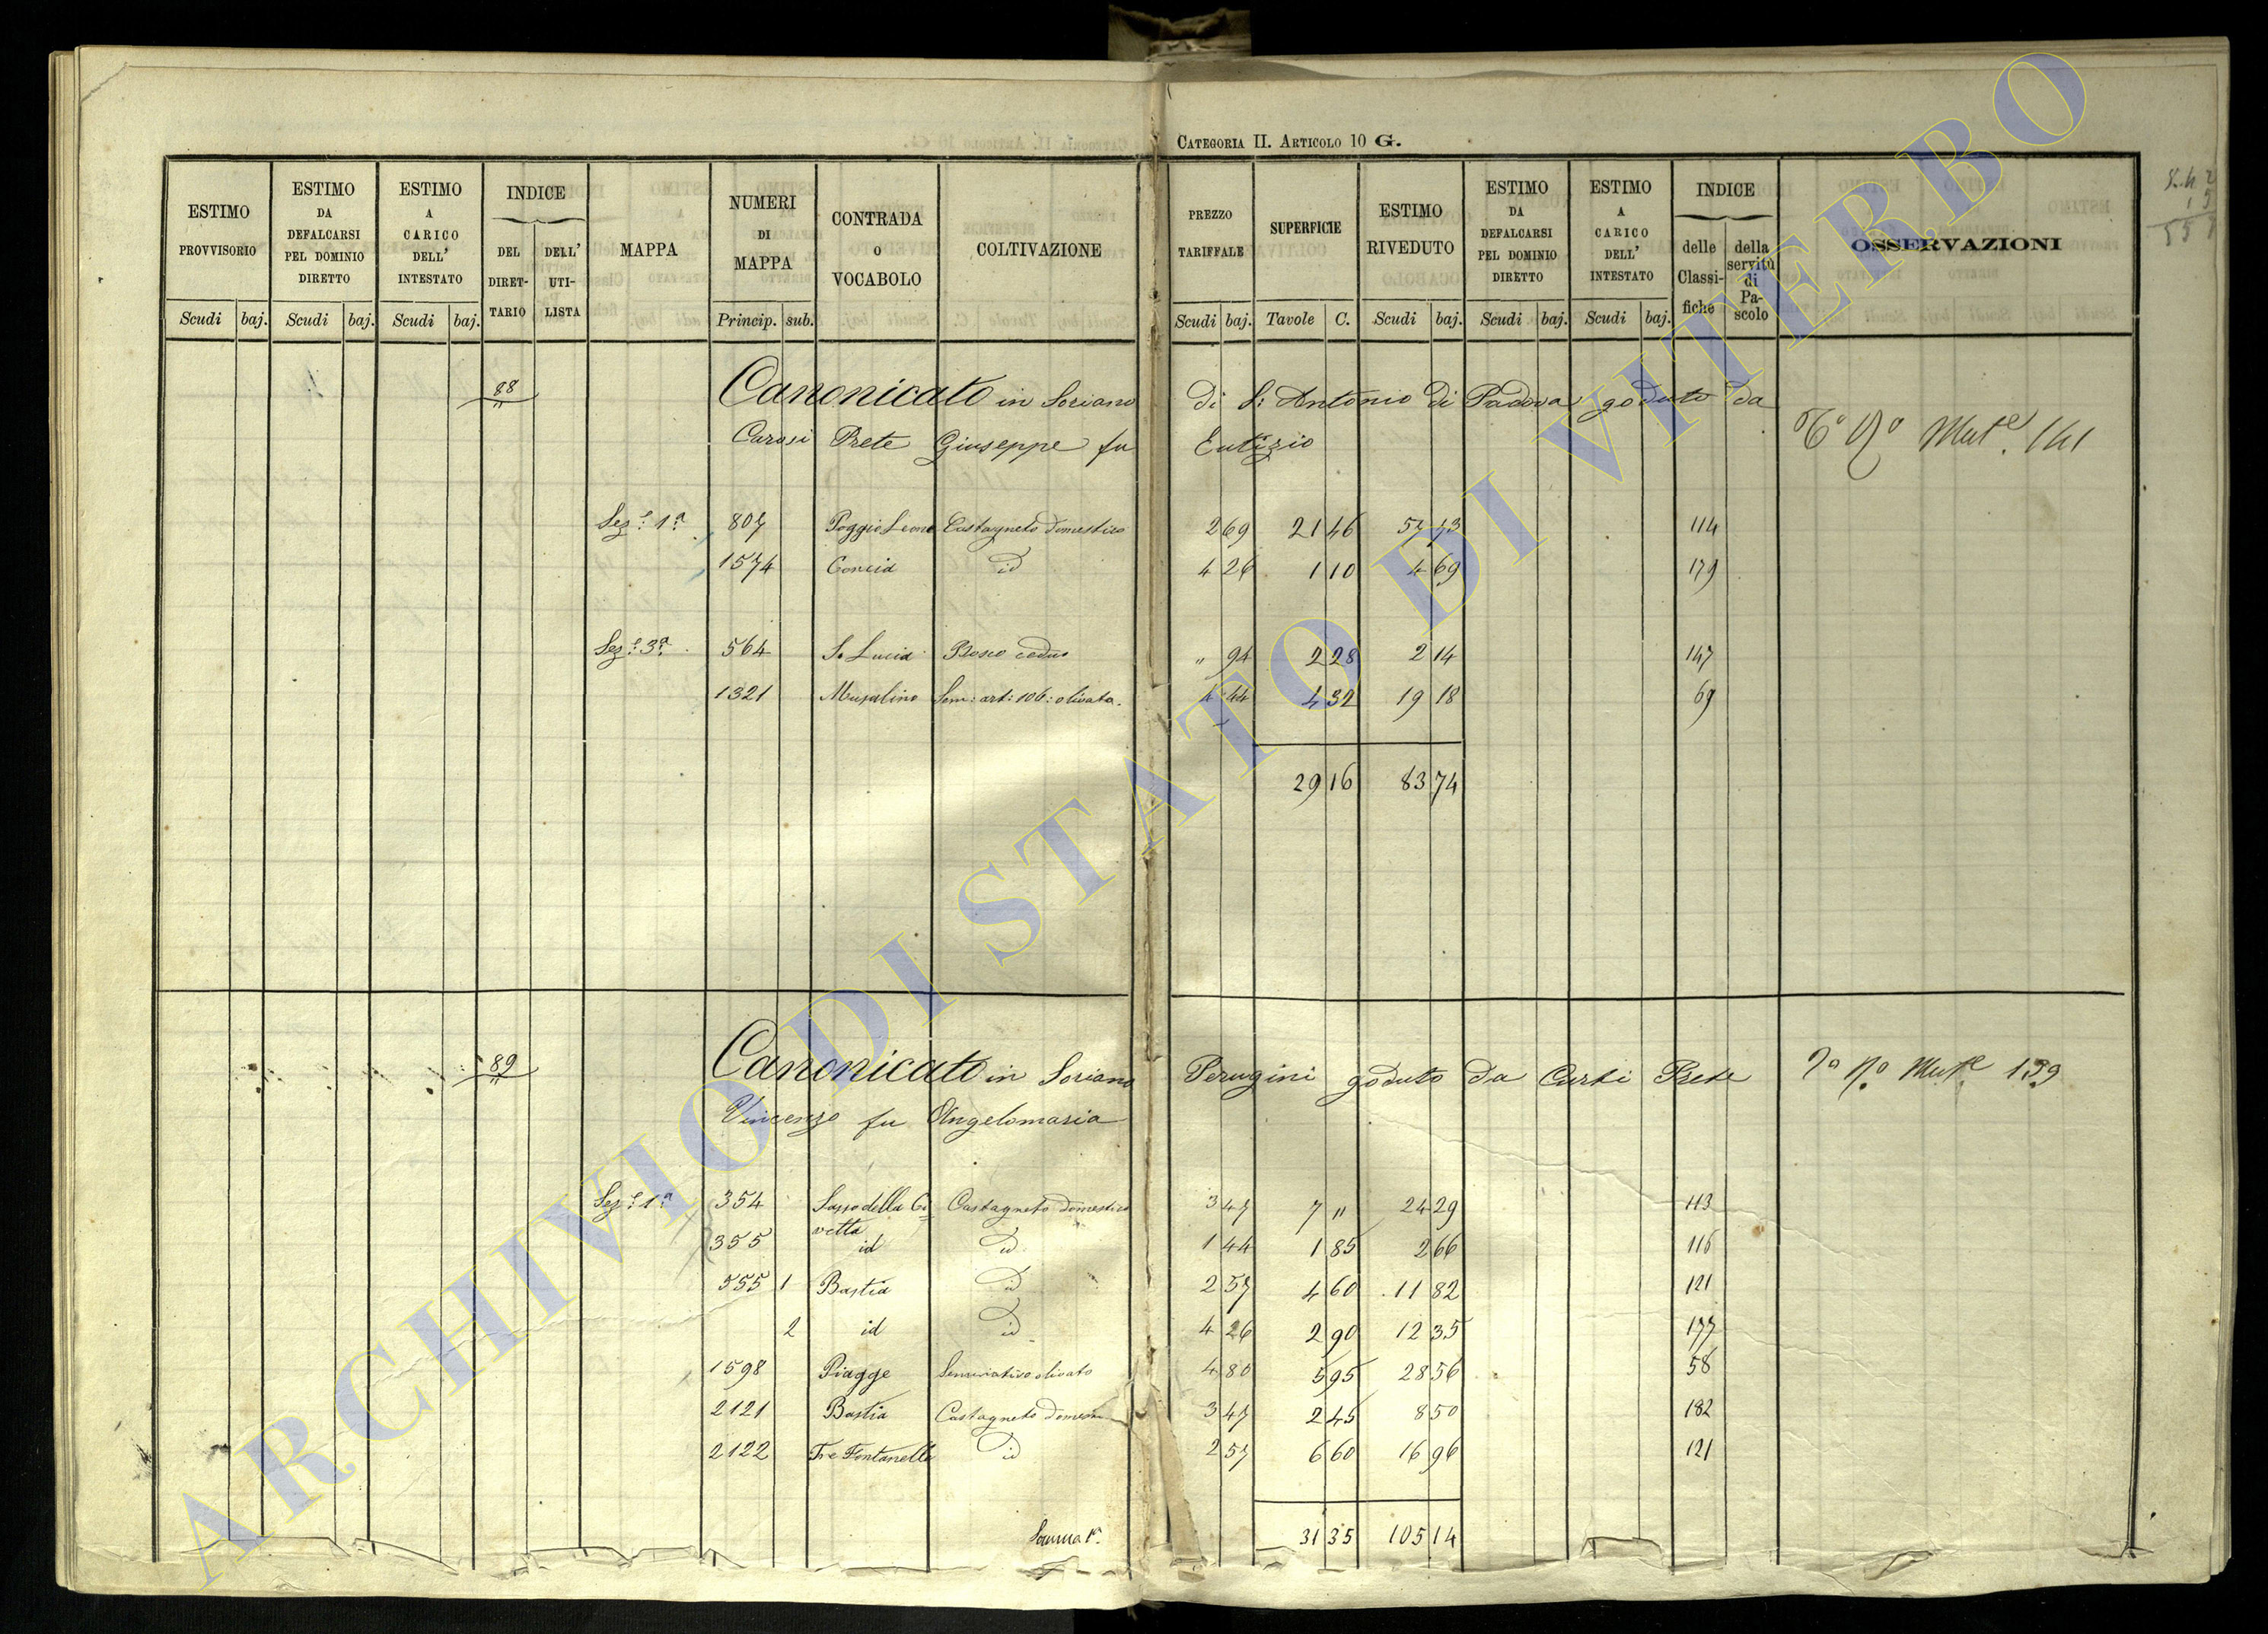 CATEGORIA II. ARTICOLO 10 G.
ESTIMO PROVVISORIO | ESTIMO DA DEFALCARSI PEL DOMINIO DIRETTO | ESTIMO A CARICO DELL' INTESTATO | INDICE DEL DIRETTARIO | DELL' UTILISTA | MAPPA | NUMERI DI MAPPA | CONTRADA O VOCABOLO | COLTIVAZIONE | PREZZO TARIFFALE | SUPERFICIE | ESTIMO RIVEDUTO | ESTIMO DA DEFALCARSI PEL DOMINIO DIRETTO | ESTIMO A CARICO DELL' INTESTATO | INDICE delle Classifiche | della servitù di Pascolo | OSSERVAZIONI
Scudi | baj. | Scudi | baj. | Scudi | baj. | Princip. | sub. | Scudi | baj. | Tavole | C. | Scudi | baj. | Scudi | baj. | Scudi | baj.
88 Canonicato in Soriano di S: Antonio di Padova goduto da
Carosi Prete Giuseppe fu Eutizio
Mut.e 141
Sez.e 1.a 807 Poggio Leone Castagneto domestico 2 69 21 46 57 73 114
1574 Concia id 4 26 1 10 4 69 179
Sez.e 3.a 564 S. Lucia Bosco ceduo " 94 2 28 2 14 147
1321 Musalino Sem: art: 106: olivato. 4 44 4 32 19 18 69
29 16 83 74
89 Canonicato in Soriano Perugini goduto da Curti Prete
Vincenzo fu Angelomaria
Mut.e 139
Sez.e 1.a 354 Sasso della Ci= Castagneto domestico 3 47 7 " 24 29 113
vetta
355 id id 1 44 1 85 2 66 116
555 1 Bastia id 2 57 4 60 11 82 121
2 id id 4 26 2 90 12 35 177
1598 Piagge Seminativo olivato 4 80 5 95 28 56 58
2121 Bastia Castagneto domes 3 47 2 45 8 50 182
2122 Tre Fontanelle id 2 57 6 60 16 96 121
Somma 1.a 31 35 105 14
ARCHIVIO DI STATO DI VITERBO